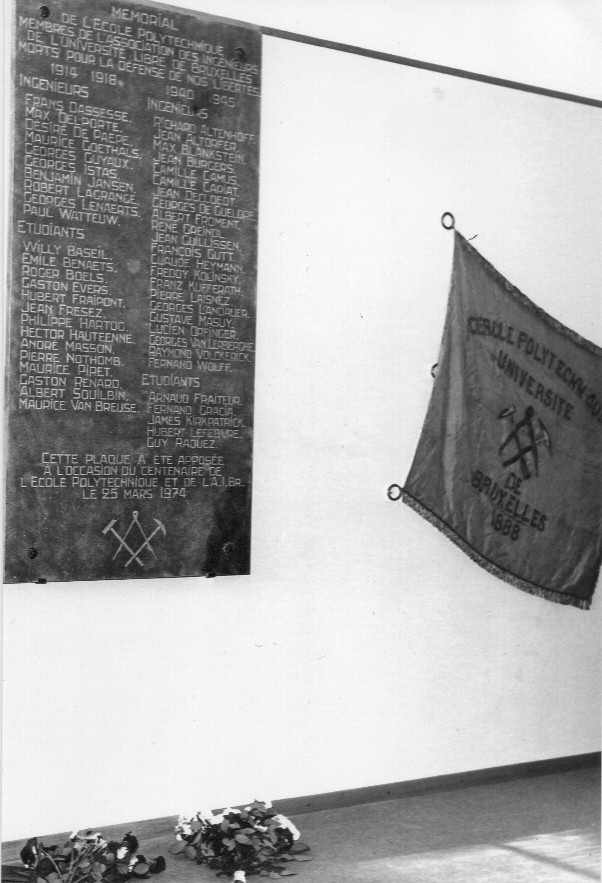 MEMORIAL
DE L'ECOLE POLYTECHNIQUE
MEMBRES DE L'ASSOCIATION DES INGENIEURS
DE L'UNIVERSITE LIBRE DE BRUXELLES
MORTS POUR LA DEFENSE DE NOS LIBERTES
1914 1918
INGENIEURS
FRANS DASSESSE,
MAX DELPORTE,
DESIRE DE PAEPE,
MAURICE GOETHALS,
GEORGES GUYAUX,
GEORGES ISTAS,
BENJAMIN JANSEN,
ROBERT LAGRANGE,
GEORGES LENAERTS,
PAUL WATTEUW,
ETUDIANTS
WILLY BASEIL,
EMILE BENAETS,
ROGER BOELS,
GASTON EVERS,
HUBERT FRAIPONT,
JEAN FRESEZ,
PHILIPPE HARTOG,
HECTOR HAUTEENNE,
ANDRE MASSON,
PIERRE NOTHOMB,
MAURICE PIRET,
GASTON RENARD,
ALBERT SOUILBIN,
MAURICE VAN BREUSE,
1940 1945
INGENIEURS
RICHARD ALTENHOFF,
JEAN ALTORFER,
MAX BLANKSTEIN,
JEAN BURGERS,
CAMILLE CAMUS,
CAMILLE CARIAT,
JEAN DECLOEDT,
GEORGES DE GUELDRE,
ALBERT FROMENT,
RENE GREINDL,
JEAN GUILLISSEN,
FRANÇOIS GUTT,
CLAUDE HEYMANN,
FREDDY KOLINSKY,
FRANZ KUFFERATH,
PIERRE LAISNEZ,
GEORGES LANDAUER,
GUSTAVE MASUY,
LUCIEN OPFINGER,
GEORGES VAN LERBERGHE,
RAYMOND VOLCKERICK,
FERNAND WOLFF,
ETUDIANTS
ARNAUD FRAITEUR,
FERNAND GRACIA,
JAMES KIRKPATRICK,
HUBERT LEFEBVRE,
GUY RAQUEZ,
CETTE PLAQUE A ETE APPOSEE
A L'OCCASION DU CENTENAIRE DE
L'ECOLE POLYTECHNIQUE ET DE L'A.I.BR.
LE 25 MARS 1974
CERCLE POLYTECHNIQUE
UNIVERSITE
DE
BRUXELLES
1888